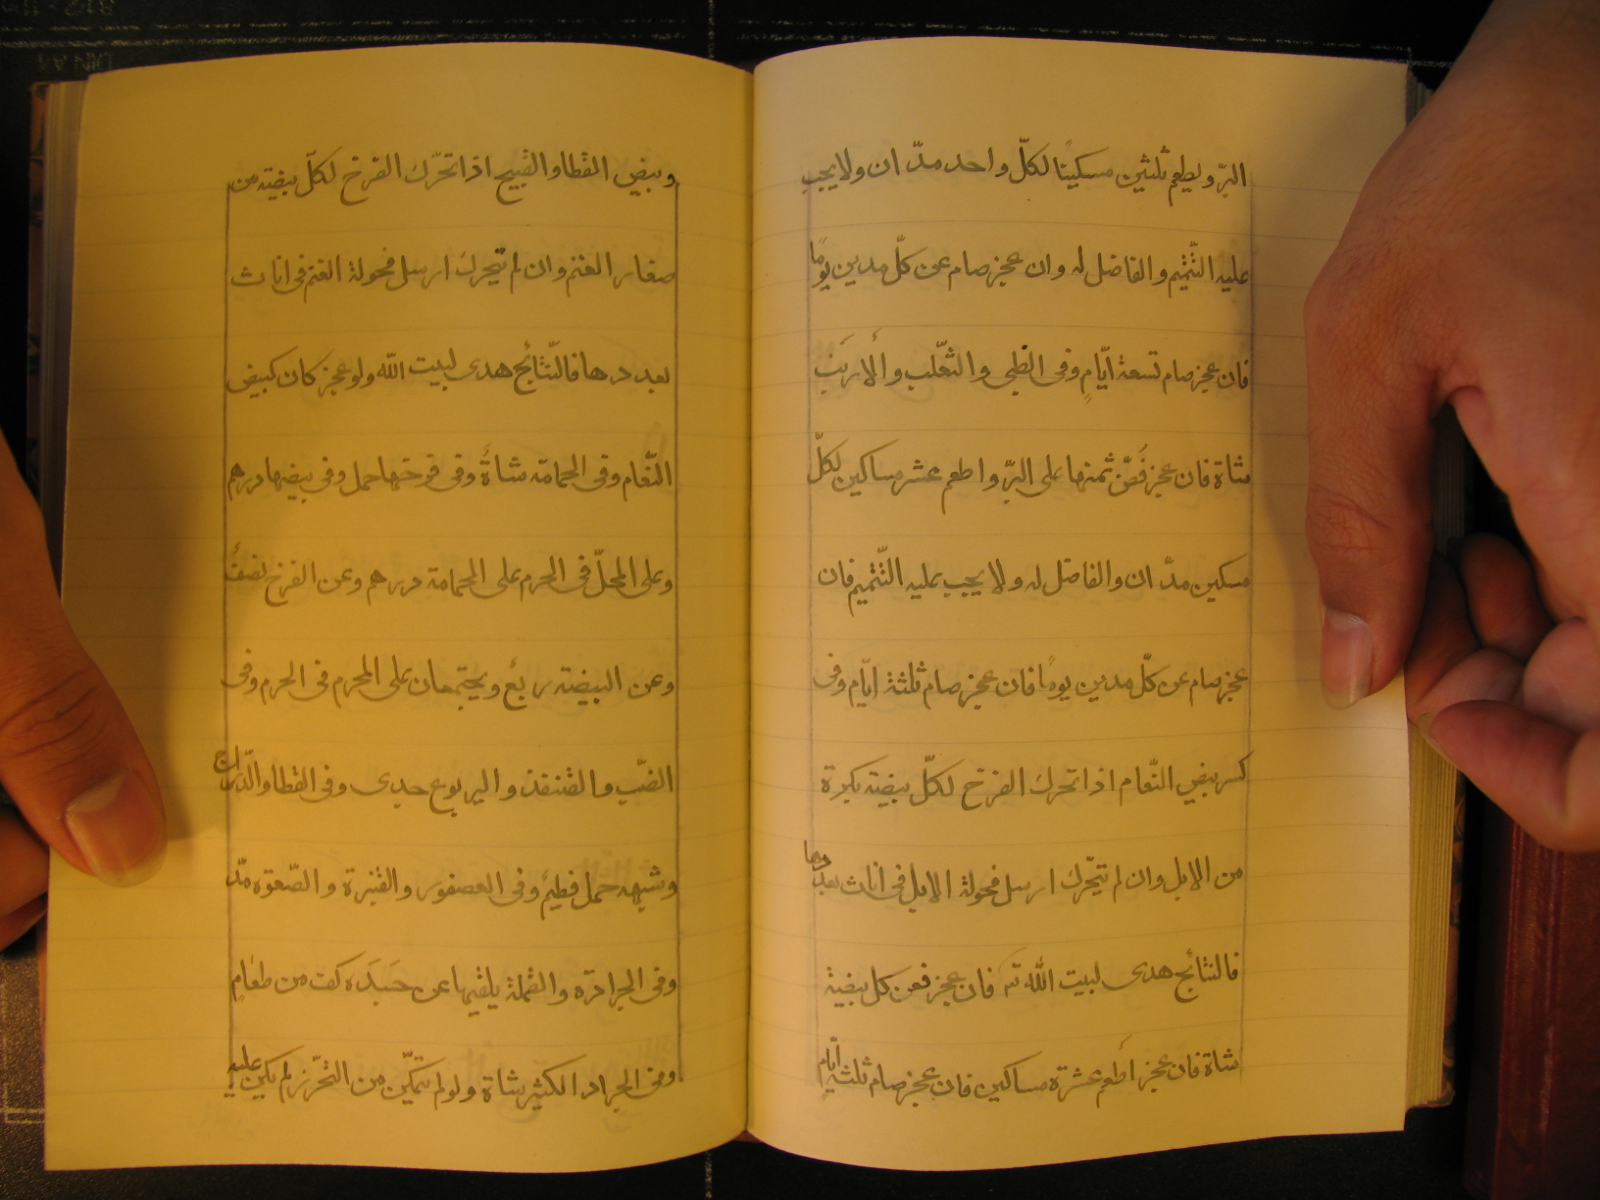 البرّ وليطعم ثلثين مسكينًا لكلّ واحد مدّ ان ولا يجب
عليه التّتميم والفاضل له وان عجز صام عن كلّ مدين يومًا
فان عجز صام تسعة ايّامٍ وفى الظبى والثّعلب والأرنب
شاة فان عجز فُضّ ثمنها على البرّ واطعم عشر مساكين لكلّ
مسكين مدّ ان والفاضل له ولا يجب عليه التّتميم فان
عجز صام عن كلّ مدين يومًا فان عجز صام ثلثة ايّام وفى
كسر بيض النّعام اذا تحرك الفرخ لكلّ بيضة بكرة
من الابل وان لم تتحرّك ارسل فحولة الابل فى اناث بعددها
فالنتائج هدى لبيت الله تع فان عجز فعن كل بيضة
شاة فان عجز اطعم عشرة مساكين فان عجز صام ثلثة ايّام
وبيض القطا والقبيج اذا تحرّك الفرخ لكلّ بيضة من
صغار الغنم وان لم تتحرك ارسل فحولة الغنم فى اناث
بعددها فالنّتائج هدى لبيت الله ولو عجز كان كبيض
النّعام وفى الحمامة شاةٌ وفى فرخها حمل وفى بيضها درهم
وعلى المحلّ فى الحرم على الحمامة درهم وعن الفرخ نصف
وعن البيضة ربع ويجتمعان على المحرم فى الحرم وفى
الضّب والقنفذ واليربوع جدى وفى القطا والدّراج
وشبهه حمل فطيم وفى العصفور والقبرة والصّعوة مدّ
وفى الجرادة والقملة يلقيها عن جسده كف من طعامٍ
وفى الجراد الكثير شاة ولو لم يتمكّن من التحّرز لم يكن عليه